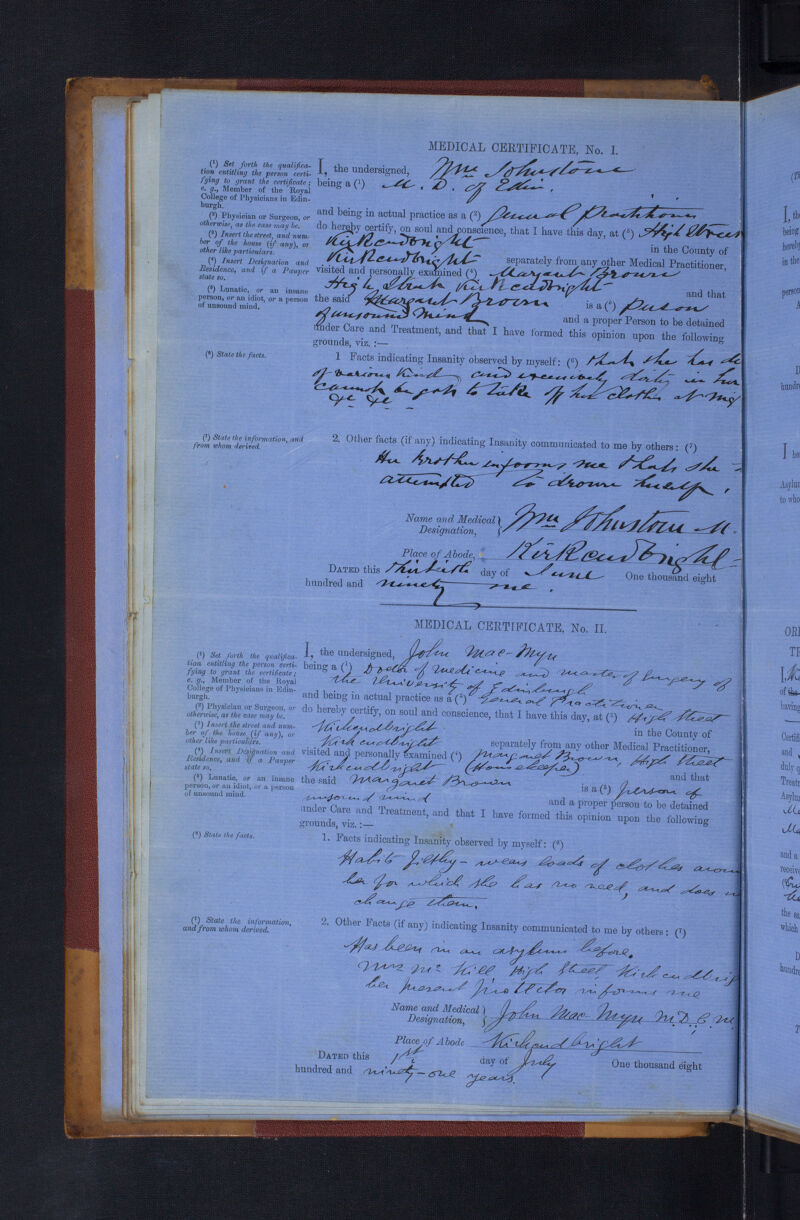 MEDICAL CERTIFICATE, No. I.
(¹) Set forth the qualifica-
tion entitling the person certi-
fying to grant the certificate;
e. g., Member of the Royal
College of Physicians in Edin-
burgh.
(²) Physician or Surgeon, or
otherwise, as the case may be.
(³) Insert the street, and num-
ber of the house (if any), or
other like particulars.
(⁴) Insert Designation and
Residence, and if a Pauper
state so.
(⁵) Lunatic, or an insane
person, or an idiot, or a person
of unsound mind.
I, the undersigned, Wm Johnstone
being a (¹) M. D. of Edin.
and being in actual practice as a (²) General Practitioner
do hereby certify, on soul and conscience, that I have this day, at (³) High Street
Kirkcudbright in the County of
Kirkcudbright separately from any other Medical Practitioner,
visited and personally examined (⁴) Margaret Brown
High Street Kirkcudbright and that
the said Margaret Brown is a (⁵) person
of unsound mind and a proper Person to be detained
under Care and Treatment, and that I have formed this opinion upon the following
grounds, viz. :—
(⁶) State the facts.
1 Facts indicating Insanity observed by myself: (⁶) that she has de
of various kind and excessively dirty in her
cannot be got to take off her clothes at
&c &c
(⁷) State the information, and
from whom derived.
2. Other facts (if any) indicating Insanity communicated to me by others: (⁷)
Her Brother informs me that she
attempted to drown herself.
Name and Medical
Designation, Wm Johnstone M.
Place of Abode, Kirkcudbright
DATED this thirtieth day of June One thousand eight
hundred and ninety one.
MEDICAL CERTIFICATE, No. II.
(¹) Set forth the qualifica-
tion entitling the person certi-
fying to grant the certificate;
e. g., Member of the Royal
College of Physicians in Edin-
burgh.
(²) Physician or Surgeon, or
otherwise, as the case may be.
(³) Insert the street and num-
ber of the house (if any), or
other like particulars.
(⁴) Insert Designation and
Residence, and if a Pauper
state so.
(⁵) Lunatic, or an insane
person, or an idiot, or a person
of unsound mind.
I, the undersigned, John Mac-Myn
being a (¹) Doctor of medicine and master of surgery of
the University of Edinburgh
and being in actual practice as a (²) General Practitioner
do hereby certify, on soul and conscience, that I have this day, at (³) High Street
Kirkcudbright in the County of
Kirkcudbright separately from any other Medical Practitioner,
visited and personally examined (⁴) Margaret Brown, High Street
Kirkcudbright (Housekeeper) and that
the said Margaret Brown is a (⁵) person of
unsound mind and a proper person to be detained
under Care and Treatment, and that I have formed this opinion upon the following
grounds, viz. :—
(⁶) State the facts.
1. Facts indicating Insanity observed by myself: (⁶)
Habits filthy - wears loads of clothes aroun
her for which she has no need, and does n
change them.
(⁷) State the information,
and from whom derived.
2. Other Facts (if any) indicating Insanity communicated to me by others: (⁷)
Has been in an asylum before.
High Street Kirkcudbrig
her present protector informs me
Name and Medical
Designation, John Mac-Myn M.D., C.M.
Place of Abode Kirkcudbright
DATED this 1st day of July One thousand eight
hundred and ninety-one years.